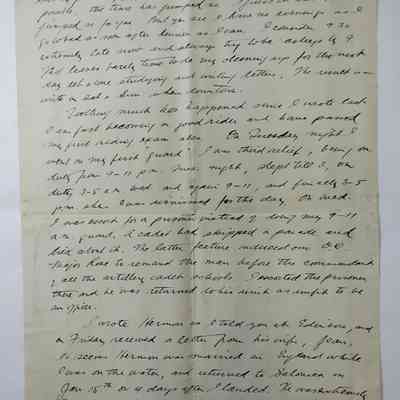 the time has jumped so
jumped so for you. But you see I have no evenings as I
go to bed as soon after dinner as I can. I consider 9.30
extremely late now and always try to be asleep by 9
This leaves barely time to do my cleaning up for the next
day let alone studying and writing letters. The result is
write in
Nothing much has happened since I wrote last
I am fast becoming a good rider and have passed
my first riding exam On Tuesday night I
went on my first "guard" I am third relief, being on
duty from 9-11 p.m. Tues. night, slept till 3, on
duty 3-5 a.m. Wed and again 9-11, and finally 3-5
p.m. when I was dismissed for the day. On Wed.
I was escort for a prisoner instead of doing my 9-11
a.m. guard. A cadet had skipped a parade and
lied about it. The latter feature induced our O.C.
Major Rose to remand the man before the commandant
of all the artillery cadet schools. I escorted the prisoner
there and he was returned to his unit as unfit to be
an officer.
I wrote Herman as I told you at Edenbridge, and
on Friday received a letter from his wife, Jean.
It seems Herman was married in England while
I was on the water, and returned to Salonica on
Jan 15th or 4 days after I landed. He was